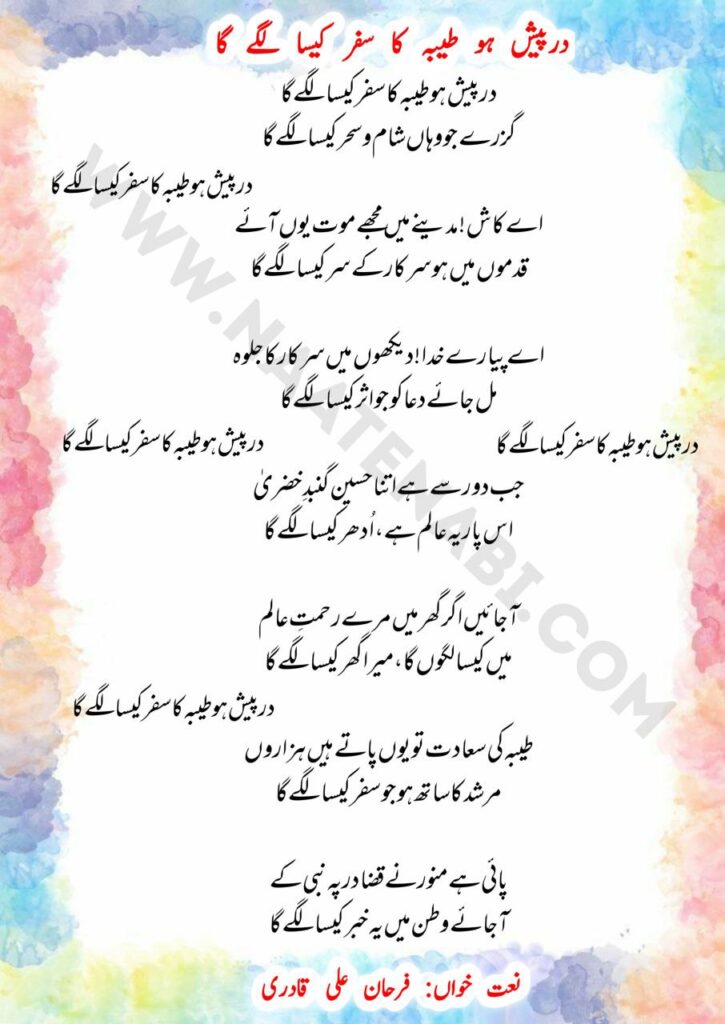 درپیش ہو طیبہ کا سفر کیسا لگے گا
درپیش ہو طیبہ کا سفر کیسا لگے گا
گزرے جو وہاں شام و سحر کیسا لگے گا
درپیش ہو طیبہ کا سفر کیسا لگے گا
اے کاش! مدینے میں مجھے موت یوں آئے
قدموں میں ہو سرکار کے سر کیسا لگے گا
اے پیارے خدا! دیکھوں میں سرکار کا جلوہ
مل جائے دعا کو جو اثر کیسا لگے گا
درپیش ہو طیبہ کا سفر کیسا لگے گا
درپیش ہو طیبہ کا سفر کیسا لگے گا
جب دور سے ہے اتنا حسین گنبدِ خضریٰ
اس پار یہ عالم ہے، اُدھر کیسا لگے گا
آجائیں اگر گھر میں مرے رحمتِ عالم
میں کیسا لگوں گا، میرا گھر کیسا لگے گا
درپیش ہو طیبہ کا سفر کیسا لگے گا
طیبہ کی سعادت تو یوں پاتے ہیں ہزاروں
مرشد کا ساتھ ہو جو سفر کیسا لگے گا
پائی ہے منور نے قضا در پہ نبی کے
آجائے وطن میں یہ خبر کیسا لگے گا
نعت خواں: فرحان علی قادری
WWW.NAATENABI.COM